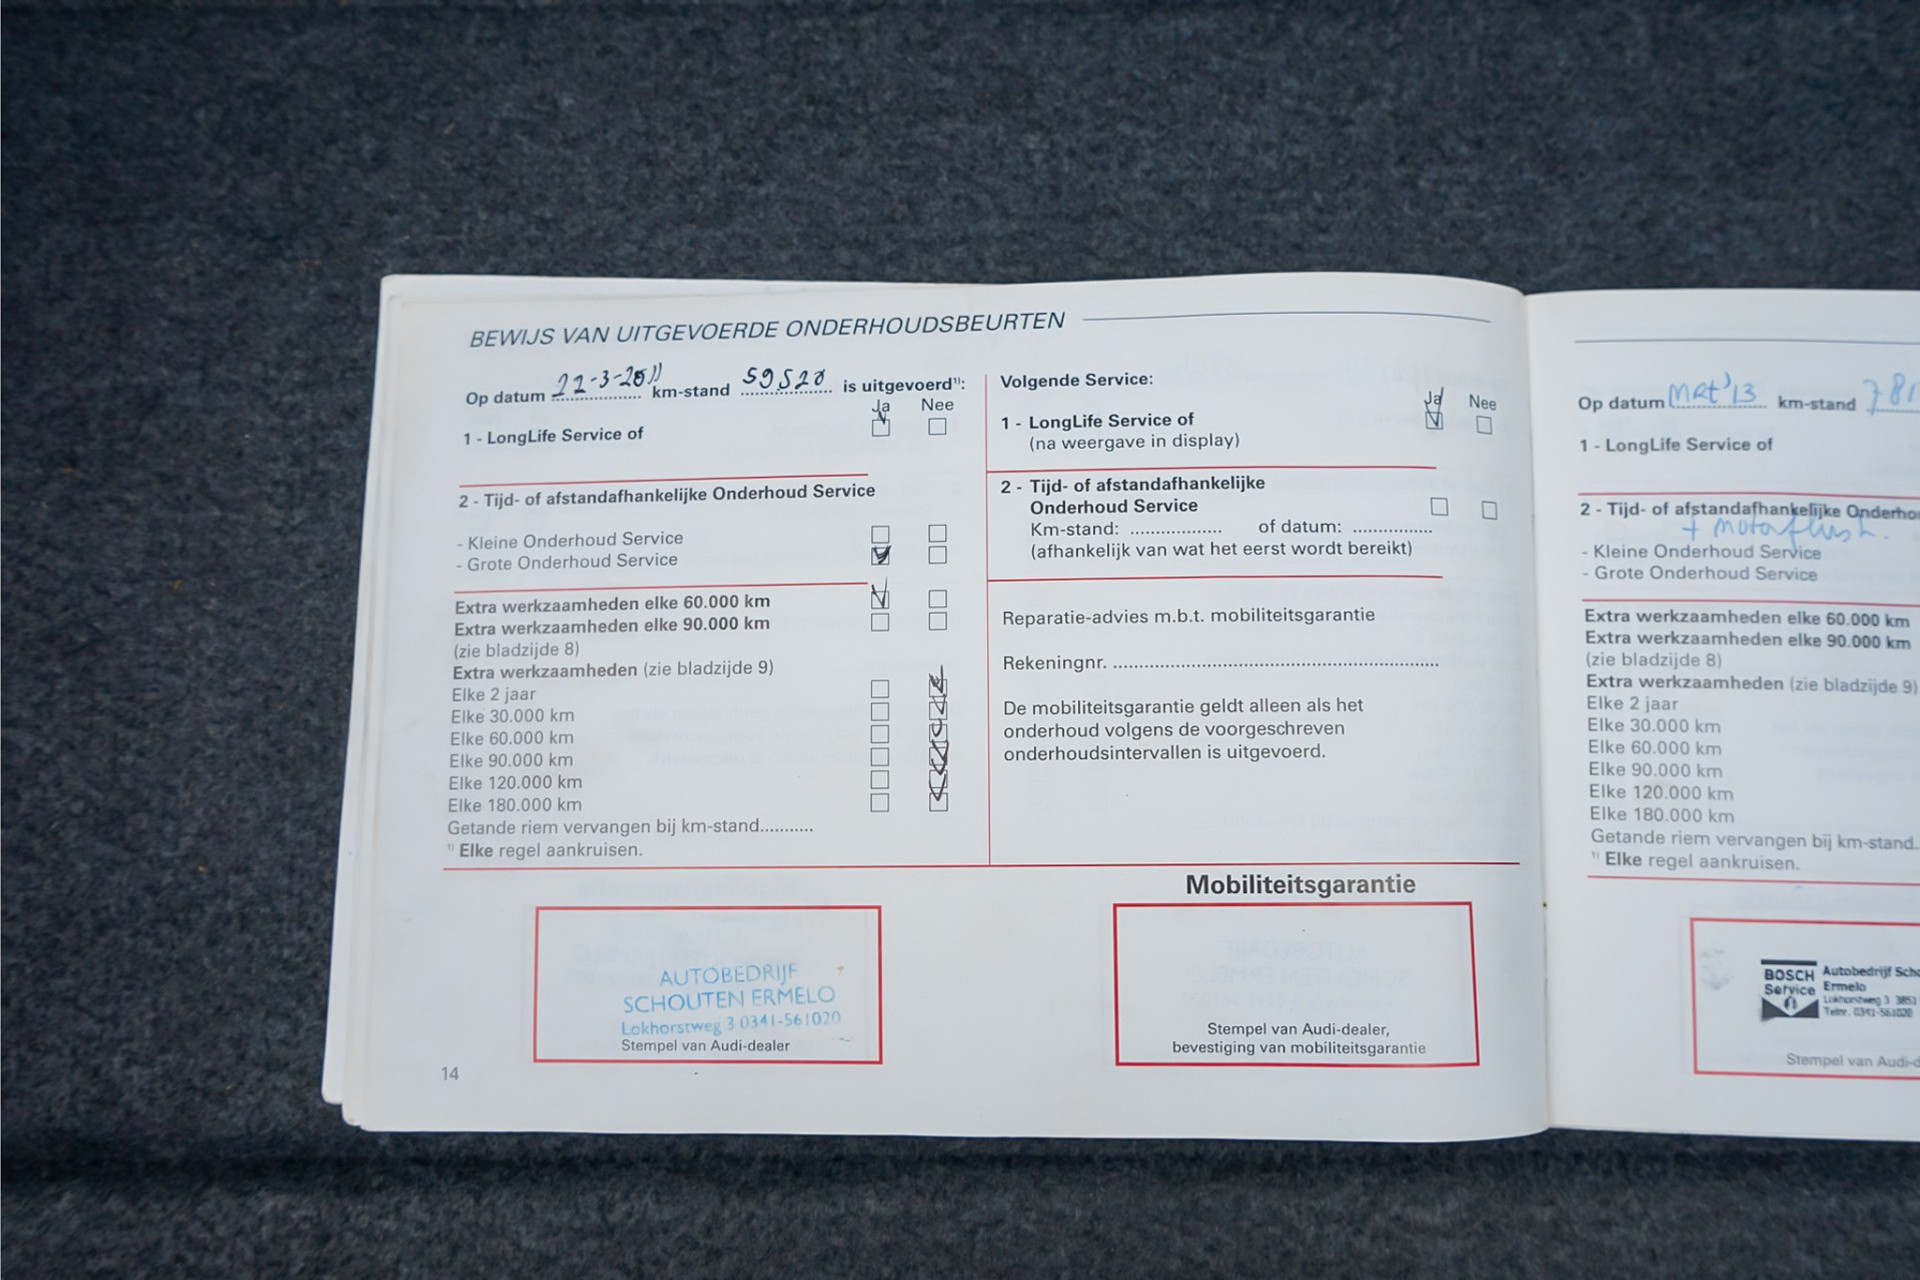 BEWIJS VAN UITGEVOERDE ONDERHOUDSBEURTEN
Op datum 22-3-2011 km-stand 59520 is uitgevoerd¹⁾:
Ja Nee
1 - LongLife Service of
2 - Tijd- of afstandafhankelijke Onderhoud Service
- Kleine Onderhoud Service
- Grote Onderhoud Service
Extra werkzaamheden elke 60.000 km
Extra werkzaamheden elke 90.000 km
(zie bladzijde 8)
Extra werkzaamheden (zie bladzijde 9)
Elke 2 jaar
Elke 30.000 km
Elke 60.000 km
Elke 90.000 km
Elke 120.000 km
Elke 180.000 km
Getande riem vervangen bij km-stand...........
¹⁾ Elke regel aankruisen.
AUTOBEDRIJF
SCHOUTEN ERMELO
Lokhorstweg 3 0341-561020
Stempel van Audi-dealer
14
Volgende Service:
Ja Nee
1 - LongLife Service of
(na weergave in display)
2 - Tijd- of afstandafhankelijke
Onderhoud Service
Km-stand: ................. of datum: ...............
(afhankelijk van wat het eerst wordt bereikt)
Reparatie-advies m.b.t. mobiliteitsgarantie
Rekeningnr. ............................................................
De mobiliteitsgarantie geldt alleen als het
onderhoud volgens de voorgeschreven
onderhoudsintervallen is uitgevoerd.
Mobiliteitsgarantie
Stempel van Audi-dealer,
bevestiging van mobiliteitsgarantie
Op datum Mrt'13 km-stand 781
1 - LongLife Service of
2 - Tijd- of afstandafhankelijke Onderho
+ Motorflush.
- Kleine Onderhoud Service
- Grote Onderhoud Service
Extra werkzaamheden elke 60.000 km
Extra werkzaamheden elke 90.000 km
(zie bladzijde 8)
Extra werkzaamheden (zie bladzijde 9)
Elke 2 jaar
Elke 30.000 km
Elke 60.000 km
Elke 90.000 km
Elke 120.000 km
Elke 180.000 km
Getande riem vervangen bij km-stand..
¹⁾ Elke regel aankruisen.
BOSCH
Service
Autobedrijf Scho
Ermelo
Lokhorstweg 3 3851
Telnr. 0341-561020
Stempel van Audi-d